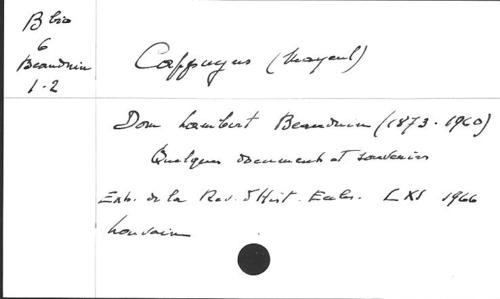 B bio
6
Beauduin
1-2
Cappuyns (Mayeul)
Dom Lambert Beauduin (1873-1960)
Quelques documents et souvenirs
Extr. de la Rev. d'Hist. Eccles. LXI 1966
Louvain